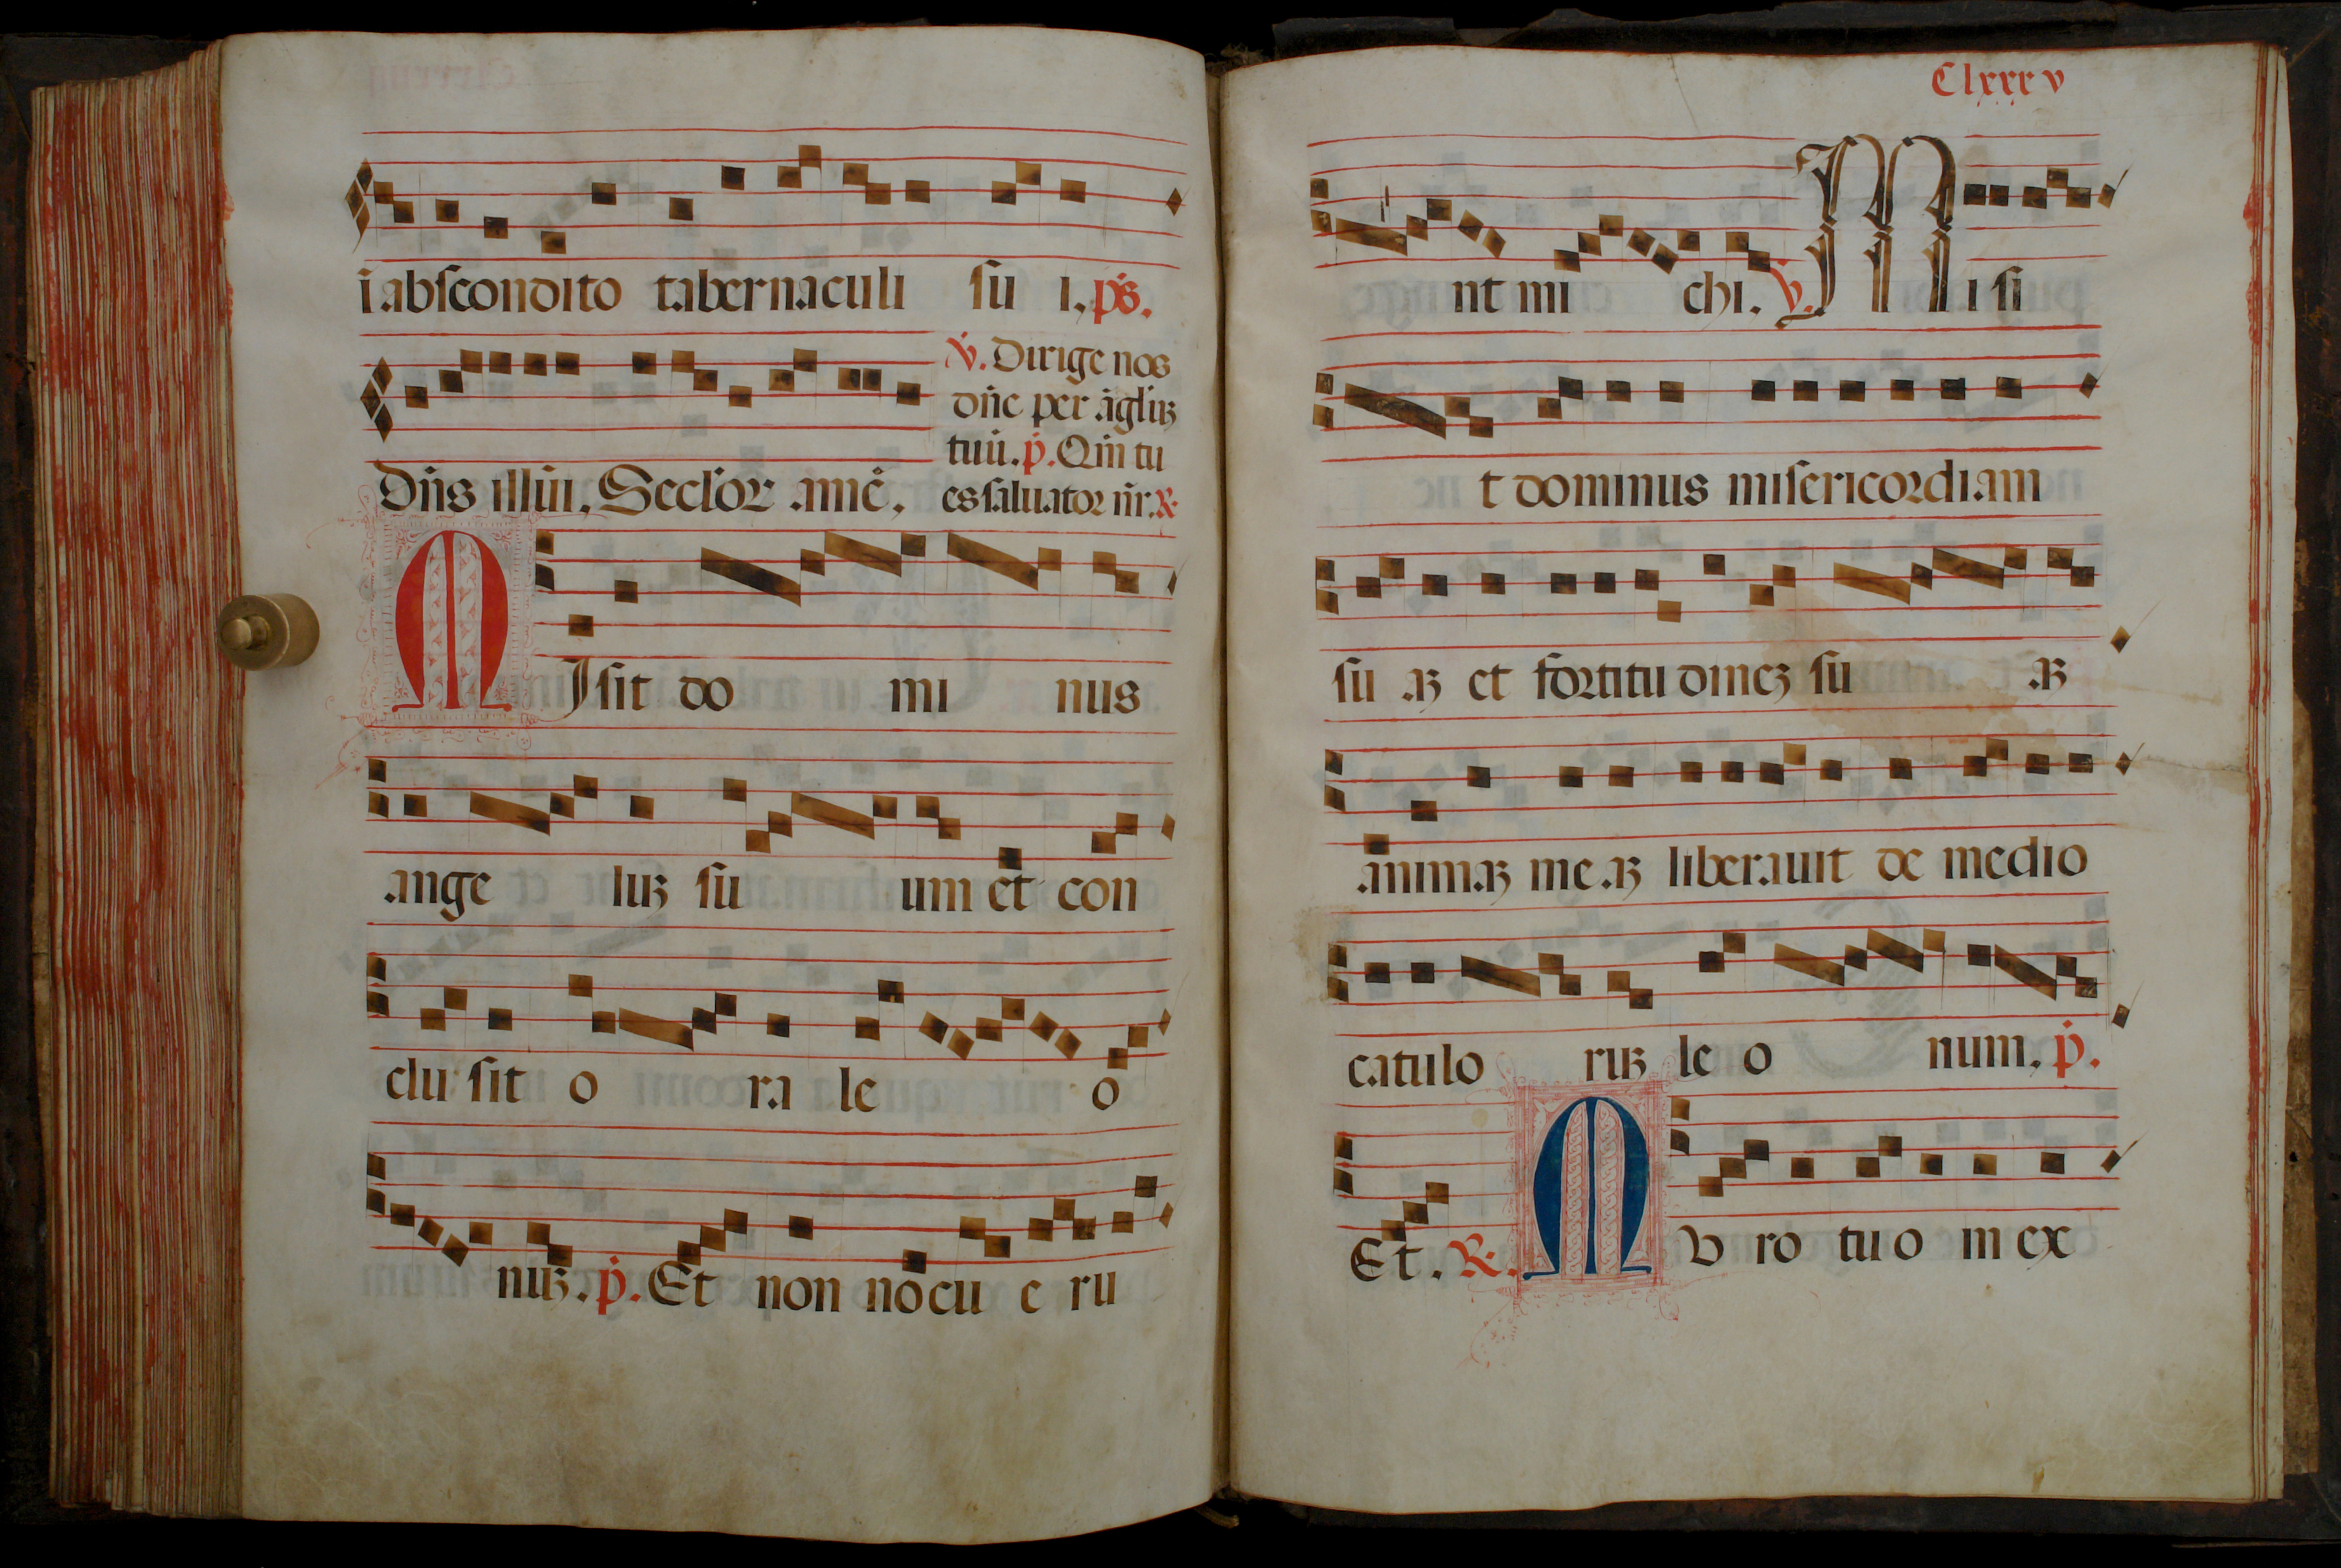 i abscondito tabernaculi su i, ps̄.
v̄. Dirige nos
dn̄e per āglīꝫ
tuū. p̄. Qm̄ tu
Dn̄s illūı, Seclōr amē, es saluator nr̄. ℟
MIsit do mi nus
ange luꝫ su um et con
clu sit o ra le o
nuꝫ. p̄. Et non nocu e ru
Clxxxv
nt mi chi. v̄. Mi si
t dominus misericordiam
su aꝫ et fortitudineꝫ su aꝫ
animaꝫ me aꝫ liberauit de medio
catulo ruꝫ le o num, p̄.
Et. ℟. MV ro tuo in ex